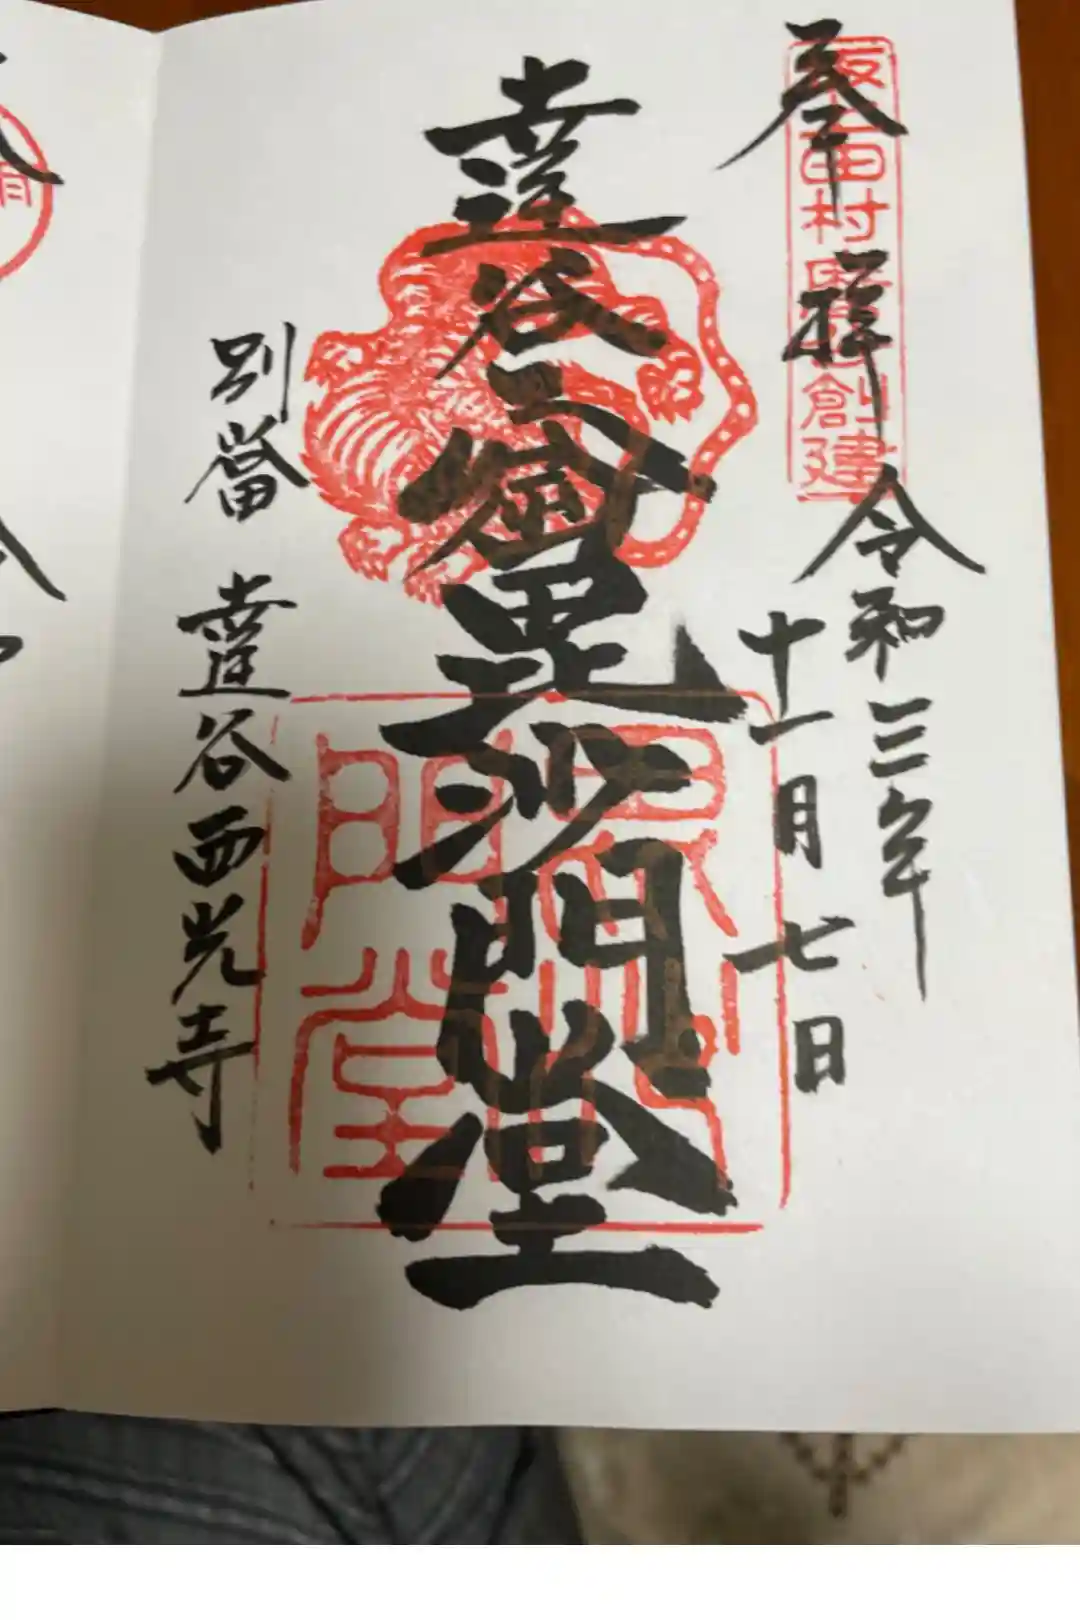 奉拝
坂上田村麿創建
令和三年
十一月七日
達谷窟毘沙門堂
別當 達谷西光寺